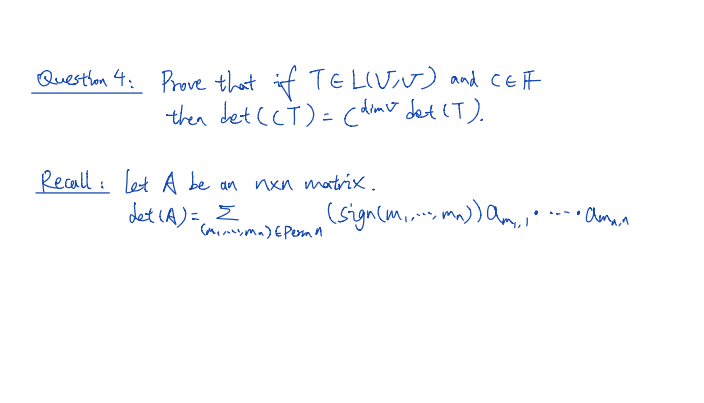 Question 4: Prove that if T ∈ L(V,V) and c ∈ 𝔽
then det(cT) = c^{dim V} det(T).
Recall: Let A be an n×n matrix.
det(A) = Σ_{(m₁,…,mₙ)∈Perm n} (sign(m₁,…,mₙ)) a_{m₁,1} · ···· · a_{mₙ,n}